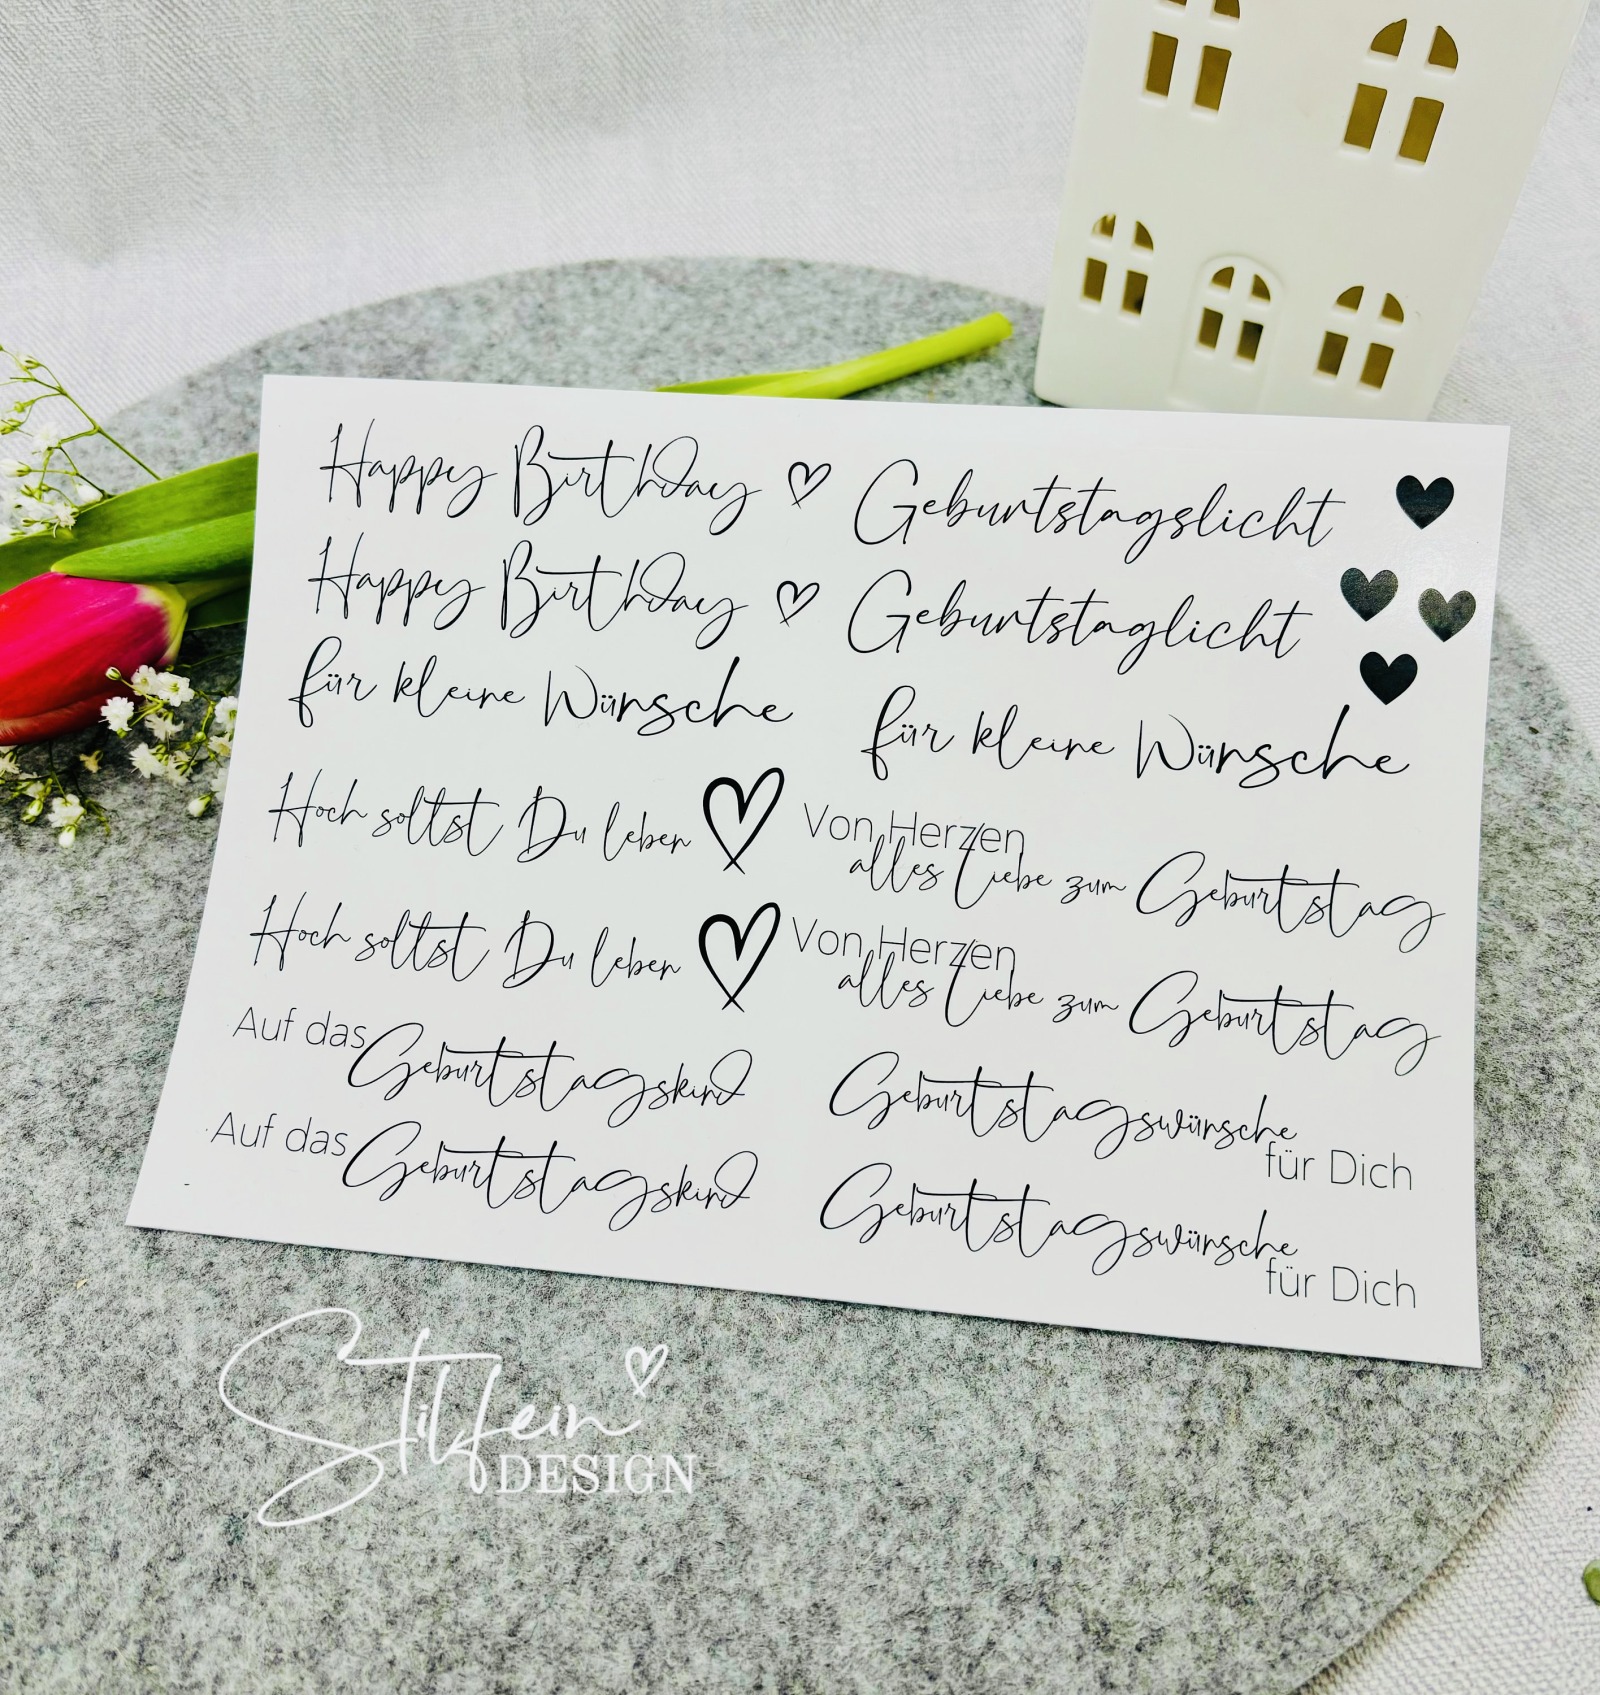 Happy Birthday
Geburtstagslicht
Happy Birthday
Geburtstaglicht
für kleine Wünsche
für kleine Wünsche
Hoch solltst Du leben
Von Herzen
alles Liebe zum Geburtstag
Hoch solltst Du leben
Von Herzen
alles Liebe zum Geburtstag
Auf das
Geburtstagskind
Geburtstagswünsche
für Dich
Auf das
Geburtstagskind
Geburtstagswünsche
für Dich
Stilfein
DESIGN